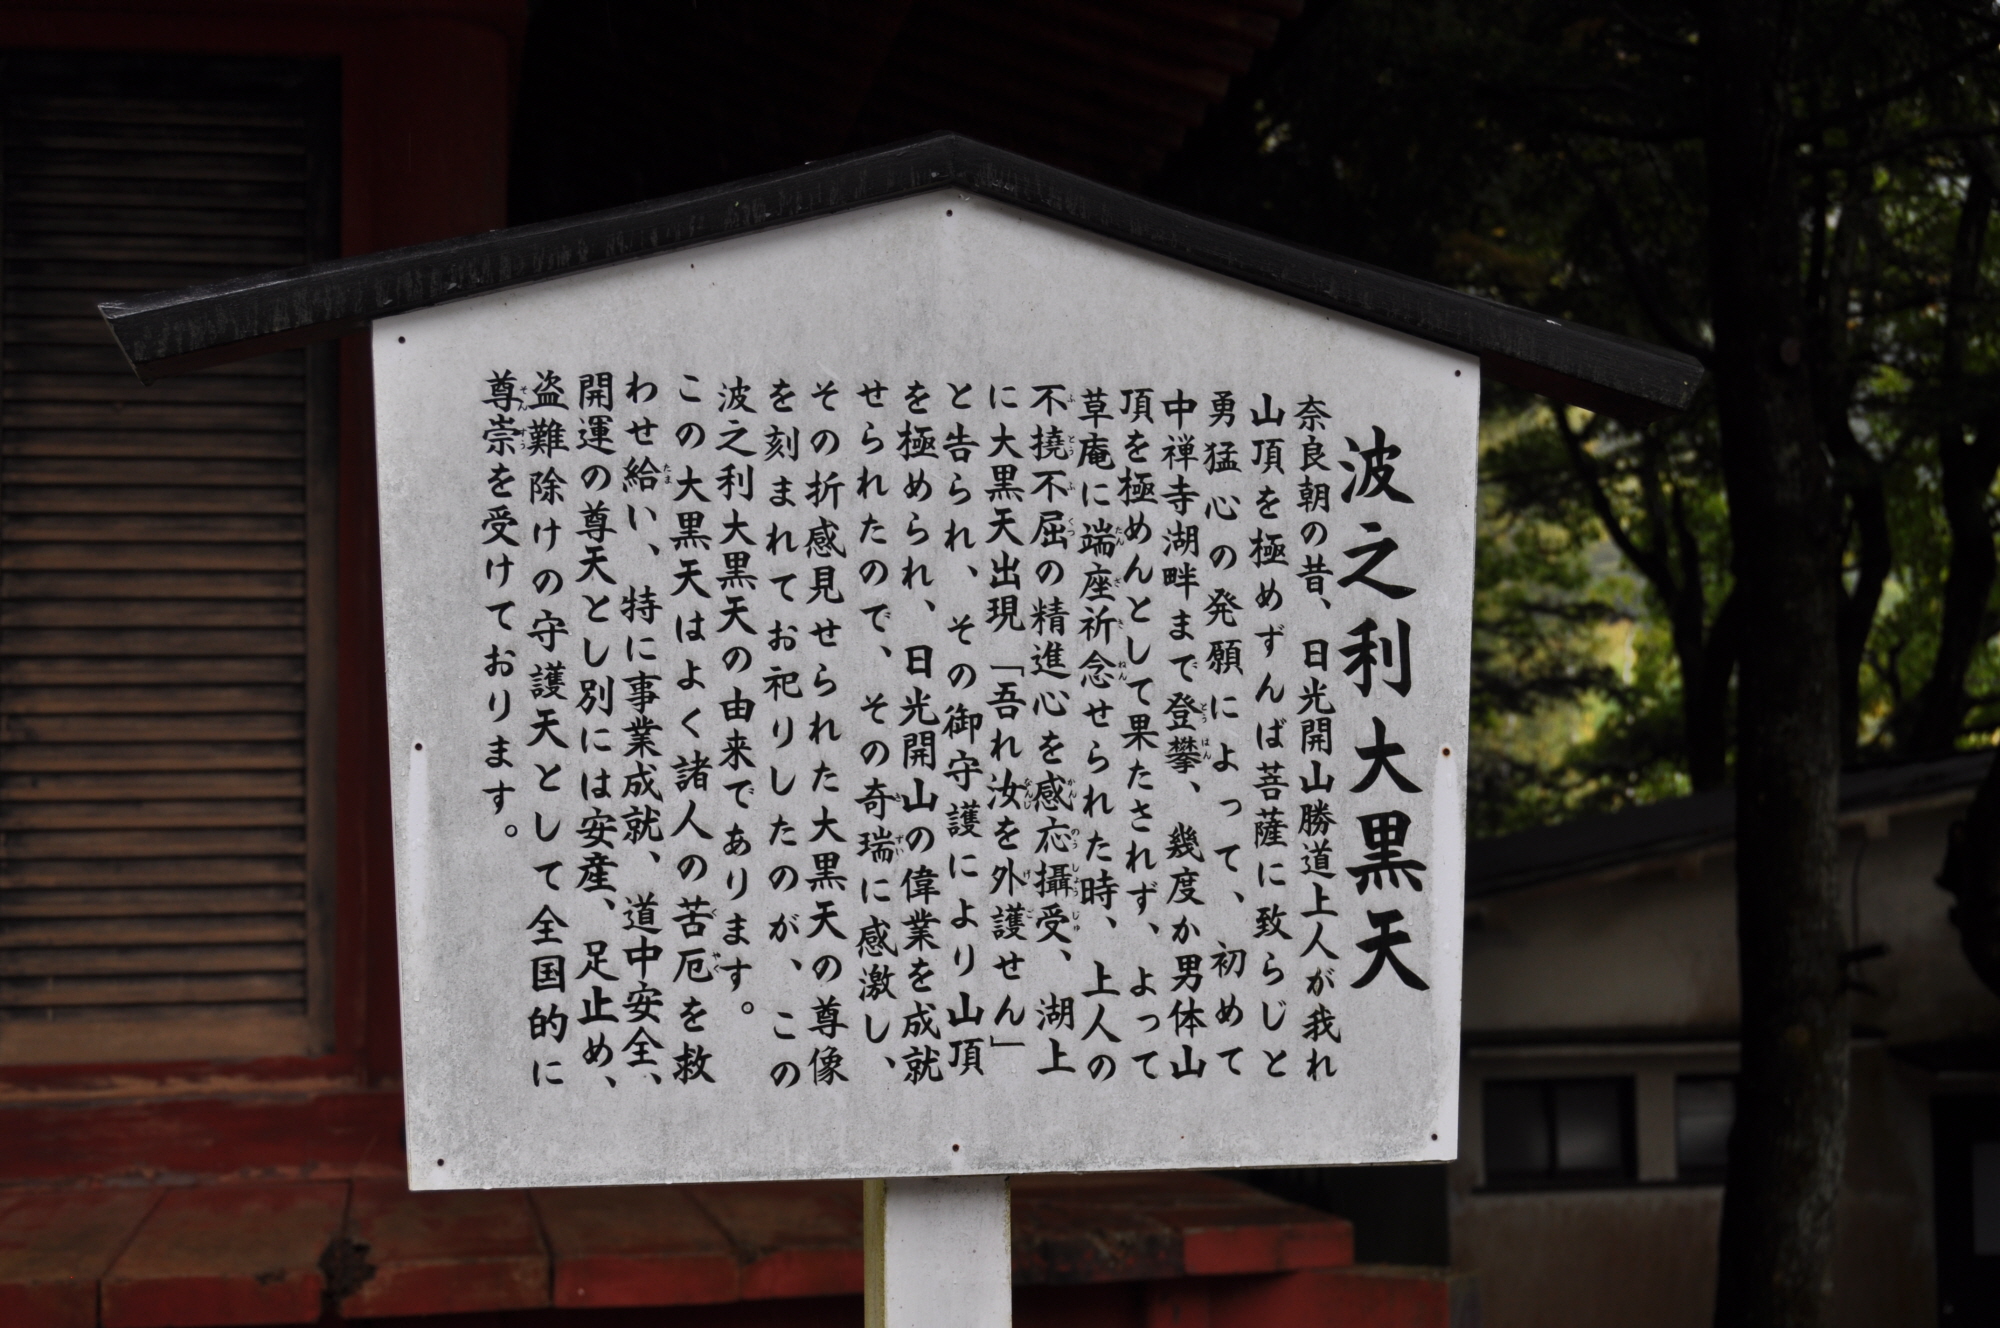 波之利大黒天
奈良朝の昔、日光開山勝道上人が我れ
山頂を極めずんば菩薩に致らじと
勇猛心の発願によって、初めて
中禅寺湖畔まで登攀、幾度か男体山
頂を極めんとして果たされず、よって
草庵に端座祈念せられた時、上人の
不撓不屈の精進心を感応攝受、湖上
に大黒天出現「吾れ汝を外護せん」
と告られ、その御守護により山頂
を極められ、日光開山の偉業を成就
せられたので、その奇瑞に感激し、
その折感見せられた大黒天の尊像
を刻まれてお祀りしたのが、この
波之利大黒天の由来であります。
この大黒天はよく諸人の苦厄を救
わせ給い、特に事業成就、道中安全、
開運の尊天とし別には安産、足止め、
盗難除けの守護天として全国的に
尊崇を受けております。